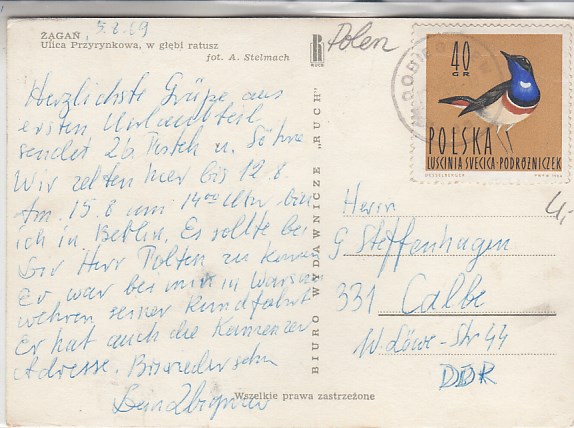 5.8.69
ŻAGAŃ
Ulica Przyrynkowa, w głębi ratusz
fot. A. Stelmach
RUCH
Polen
Herzlichste Grüße aus
ersten Urlaubteil
sendet Zb. u. Söhne
Wir zelten hier bis 12.8.
Am 15.8 um 14⁰⁰ Uhr bin
ich in Berlin. Es sollte bei
Dir Herr Polten zu
Er war bei mir in
wehren seiner Rundfahrt
Er hat auch die
Adresse. Bis wiedersehn
Dein Zbigniew
BIURO WYDAWNICZE „RUCH"
Wszelkie prawa zastrzeżone
40
GR
POLSKA
LUSCINIA SVECICA·PODRÓŻNICZEK
HESSELBERGER
PWPW 1966
4,-
Herrn
G Steffenhagen
331 Calbe
W. Löwe-Str 44
DDR